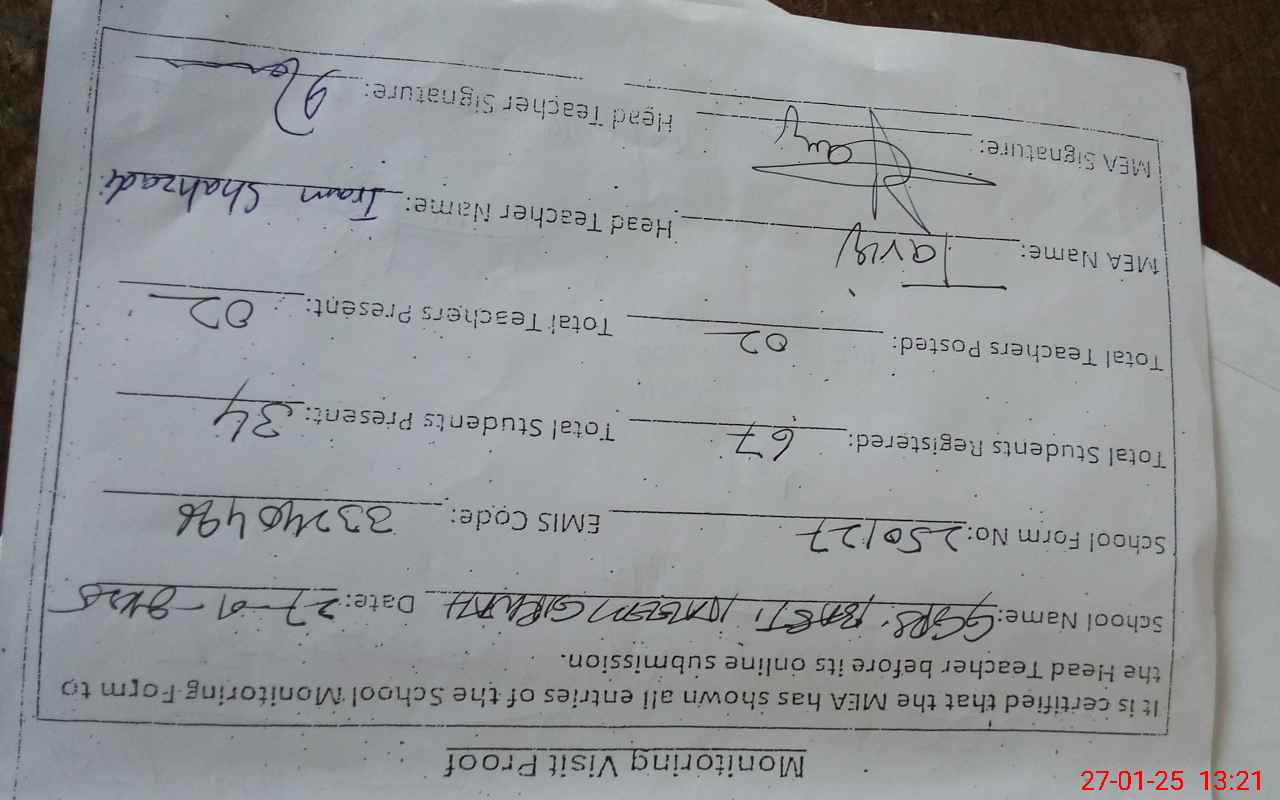 Monitoring Visit Proof
It is certified that the MEA has shown all entries of the School Monitoring Form to
the Head Teacher before its online submission.
School Name: GGPS. BASTI Date: 27-01-2025
School Form No: 250127 EMIS Code:
Total Students Registered: 67 Total Students Present: 34
Total Teachers Posted: 02 Total Teachers Present: 02
MEA Name: Head Teacher Name: Iram Shahzadi
MEA Signature: Head Teacher Signature:
27-01-25 13:21